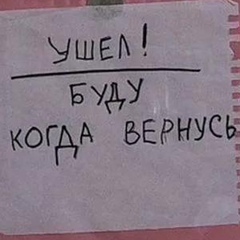 УШЕЛ!
БУДУ
КОГДА ВЕРНУСЬ